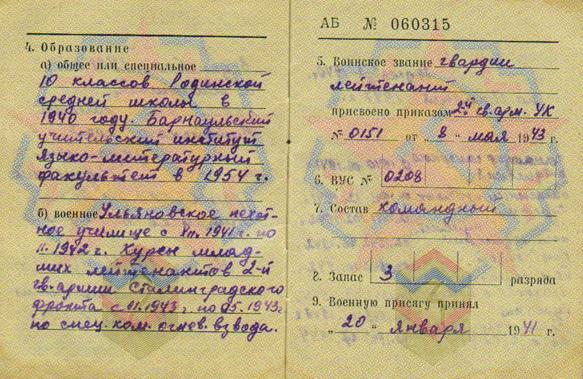 4. Образование
а) общее или специальное
10 классов Родинской
средней школы в
1940 году. Барнаульский
учительский институт
языко-литературный
факультет в 1954 г.
б) военное Ульяновское пехот-
ное училище с XII.1941 г. по
II.1942 г. Курсы млад-
ших лейтенантов 2-й
гв. армии Сталинградского
фронта с 01.1943 г. по 05.1943 г.
по спец. ком. огнев. взвода.
АБ № 060315
5. Воинское звание гвардии
лейтенант
присвоено приказом 2й гв. арм. УК
№ 0151 от „ 8 “ мая 1943 г.
6. ВУС № 0208
7. Состав командный
8. Запас 3 разряда
9. Военную присягу принял
„ 20 “ января 1941 г.